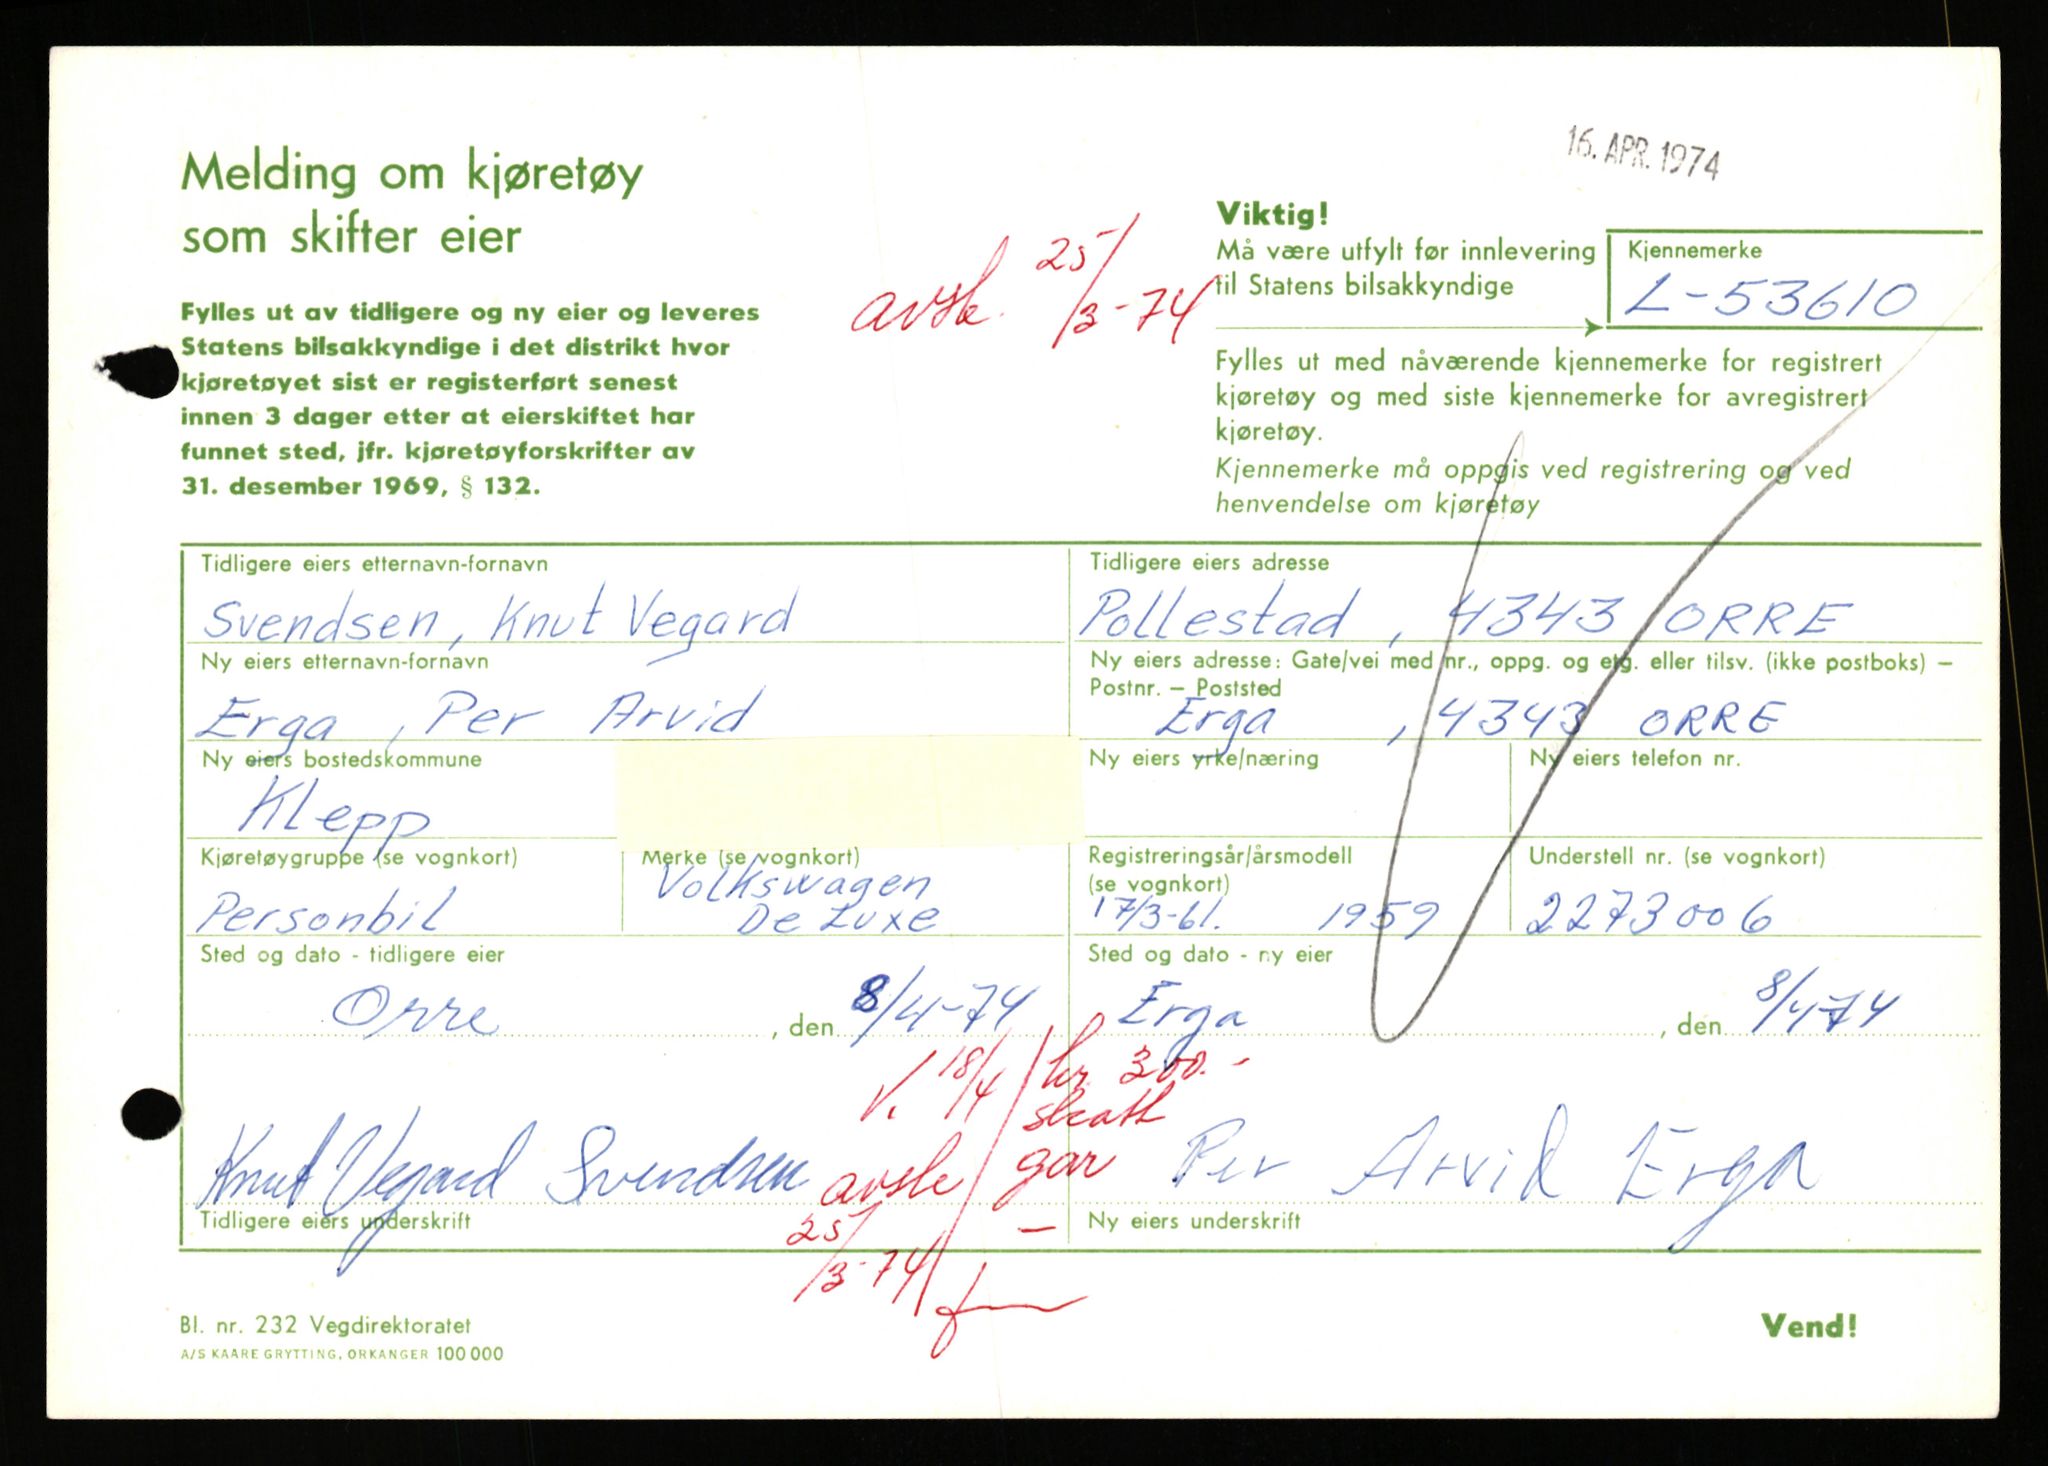 16. APR. 1974
Melding om kjøretøy
som skifter eier
Fylles ut av tidligere og ny eier og leveres
Statens bilsakkyndige i det distrikt hvor
kjøretøyet sist er registerført senest
innen 3 dager etter at eierskiftet har
funnet sted, jfr. kjøretøyforskrifter av
31. desember 1969, § 132.
avsk. 25/3-74
Viktig!
Må være utfylt før innlevering
til Statens bilsakkyndige
Kjennemerke
L-53610
Fylles ut med nåværende kjennemerke for registrert
kjøretøy og med siste kjennemerke for avregistrert
kjøretøy.
Kjennemerke må oppgis ved registrering og ved
henvendelse om kjøretøy
Tidligere eiers etternavn-fornavn
Svendsen, Knut Vegard
Tidligere eiers adresse
Pollestad, 4343 ORRE
Ny eiers etternavn-fornavn
Erga, Per Arvid
Ny eiers adresse: Gate/vei med nr., oppg. og etg. eller tilsv. (ikke postboks) –
Postnr. – Poststed
Erga, 4343 ORRE
Ny eiers bostedskommune
Klepp
Ny eiers yrke/næring
Ny eiers telefon nr.
Kjøretøygruppe (se vognkort)
Personbil
Merke (se vognkort)
Volkswagen
De Luxe
Registreringsår/årsmodell
(se vognkort)
17/3-61. 1959
Understell nr. (se vognkort)
2273006
Sted og dato - tidligere eier
Orre, den 8/4-74
Sted og dato - ny eier
Erga, den 8/4-74
V. 18/4
avsk
25/3-74
kr. 300.-
gar
Knut Vegard Svendsen
Tidligere eiers underskrift
Per Arvid Erga
Ny eiers underskrift
Bl. nr. 232 Vegdirektoratet
A/S KAARE GRYTTING, ORKANGER 100 000
Vend!